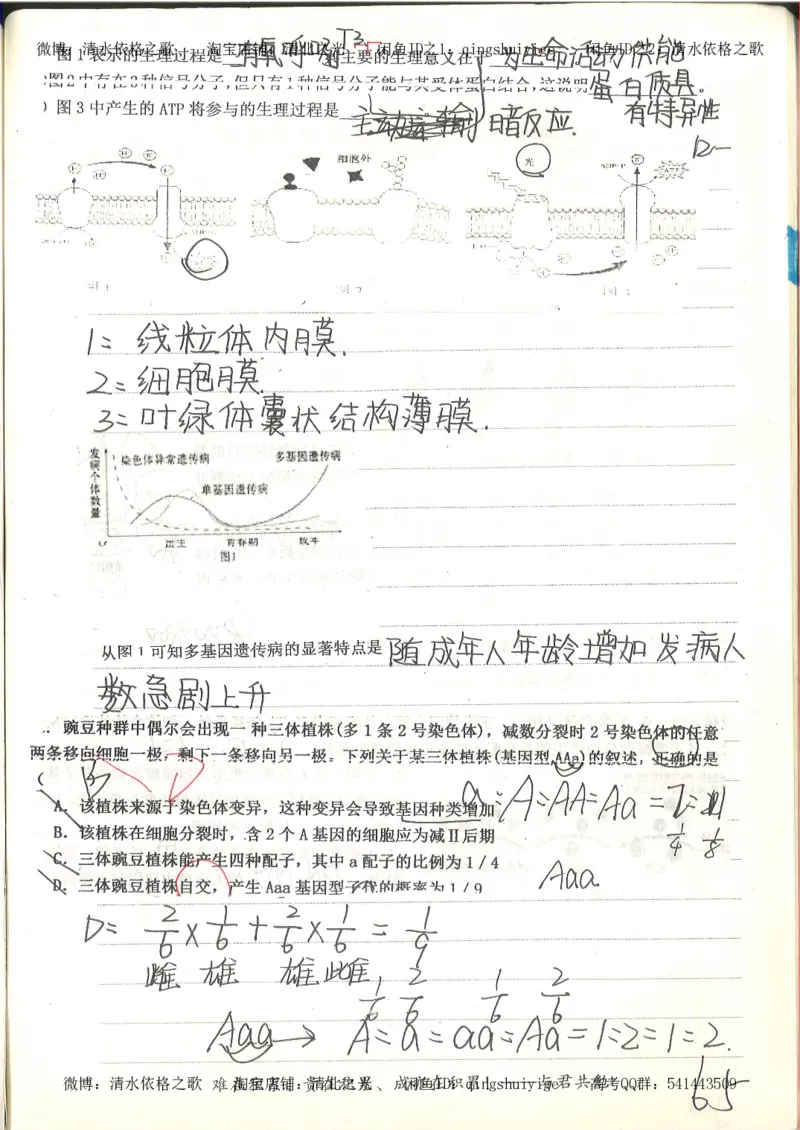 微博：清水依格之歌 淘宝店铺：清北之光 闲鱼ID之1：qingshuiyige 闲鱼ID之2：清水依格之歌
图 1 表示的生理过程是 有氧呼吸 主要的生理意义在于 为生命活动供能
图 2 中存在 3 种信号分子,但只有 1 种信号分子能与其受体蛋白结合,这说明 蛋白质具有特异性
) 图 3 中产生的 ATP 将参与的生理过程是 暗反应.
细胞外
光
1= 线粒体内膜.
2=细胞膜.
3=叶绿体囊状结构薄膜.
发病个体数量
染色体异常遗传病
多基因遗传病
单基因遗传病
出生 青春期 成年
图1
从图 1 可知多基因遗传病的显著特点是 随成年人年龄增加发病人
数急剧上升
豌豆种群中偶尔会出现一 种三体植株(多 1 条 2 号染色体)，减数分裂时 2 号染色体的任意
两条移向细胞一极，剩下一条移向另一极。下列关于某三体植株(基因型 AAa)的叙述，正确的是
B D
a=A=AA=Aa=
A．该植株来源于染色体变异，这种变异会导致基因种类增加
B．该植株在细胞分裂时，含 2 个 A 基因的细胞应为减Ⅱ后期
C．三体豌豆植株能产生四种配子，其中 a 配子的比例为 1 / 4
D．三体豌豆植株自交，产生 Aaa 基因型子代的概率为 1 / 9
Aaa
D= 2/6 × 1/6 + 2/6 × 1/6 = 1/9
雌 雄 雄 雌
1/6 2/6 1/6 2/6
Aaa → A=a=aa=Aa=1=2=1=2.
微博：清水依格之歌 淘宝店铺：清北之光 闲鱼ID：qingshuiyige 高考QQ群：541443509
65